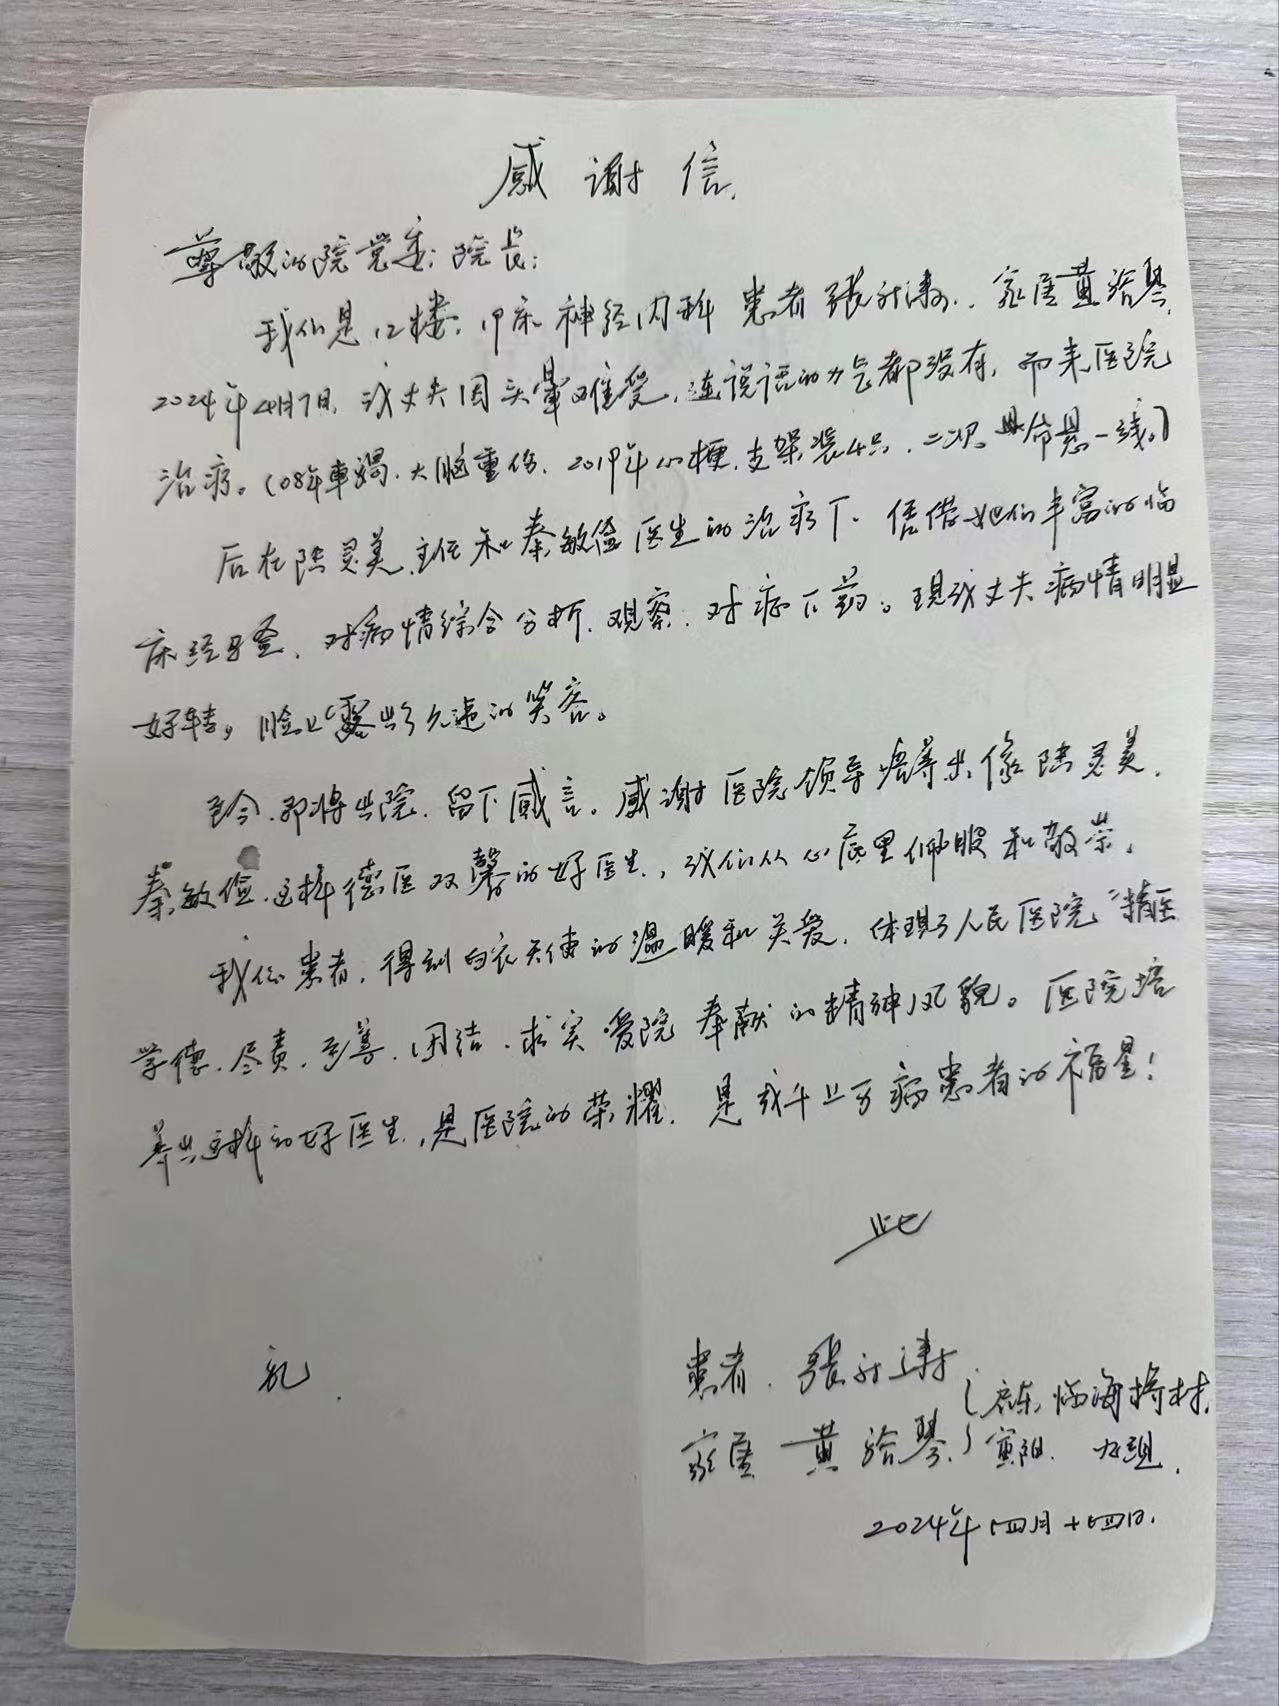 感谢信.
尊敬的院党委:院长:
我们是12楼. 神经内科 患者 张 . 家属黄 琴.
2024年4月7日, 我丈夫因头晕难受,连说话的力气都没有,而来医院
治疗。(08年車祸.大脑重伤.2019年心梗.支架装4只.二次 命悬一线。)
后在陆灵美.主任和秦敏俭医生的治疗下.凭借她们丰富的临
床经验、对病情综合分析.观察.对症下药。現我丈夫病情明显
好转,脸上露出了久违的笑容。
至今.即将出院.留下感言。感谢医院领导培养出像陆灵美.
秦敏俭.这样德医双馨的好医生,我们从心底里佩服和敬荣.
我们患者,得到白衣天使的温暖和关爱.体现了人民医院“精医
学德.尽责.至善.团结.求实.爱院 奉献的精神风貌。医院培
养出这样的好医生,是医院的荣耀.是我千上万病患者的福星!
此
礼.
患者.张
家属 黄 琴.
启东 临海 村.
寅阳. 九组.
2024年四月十四日.